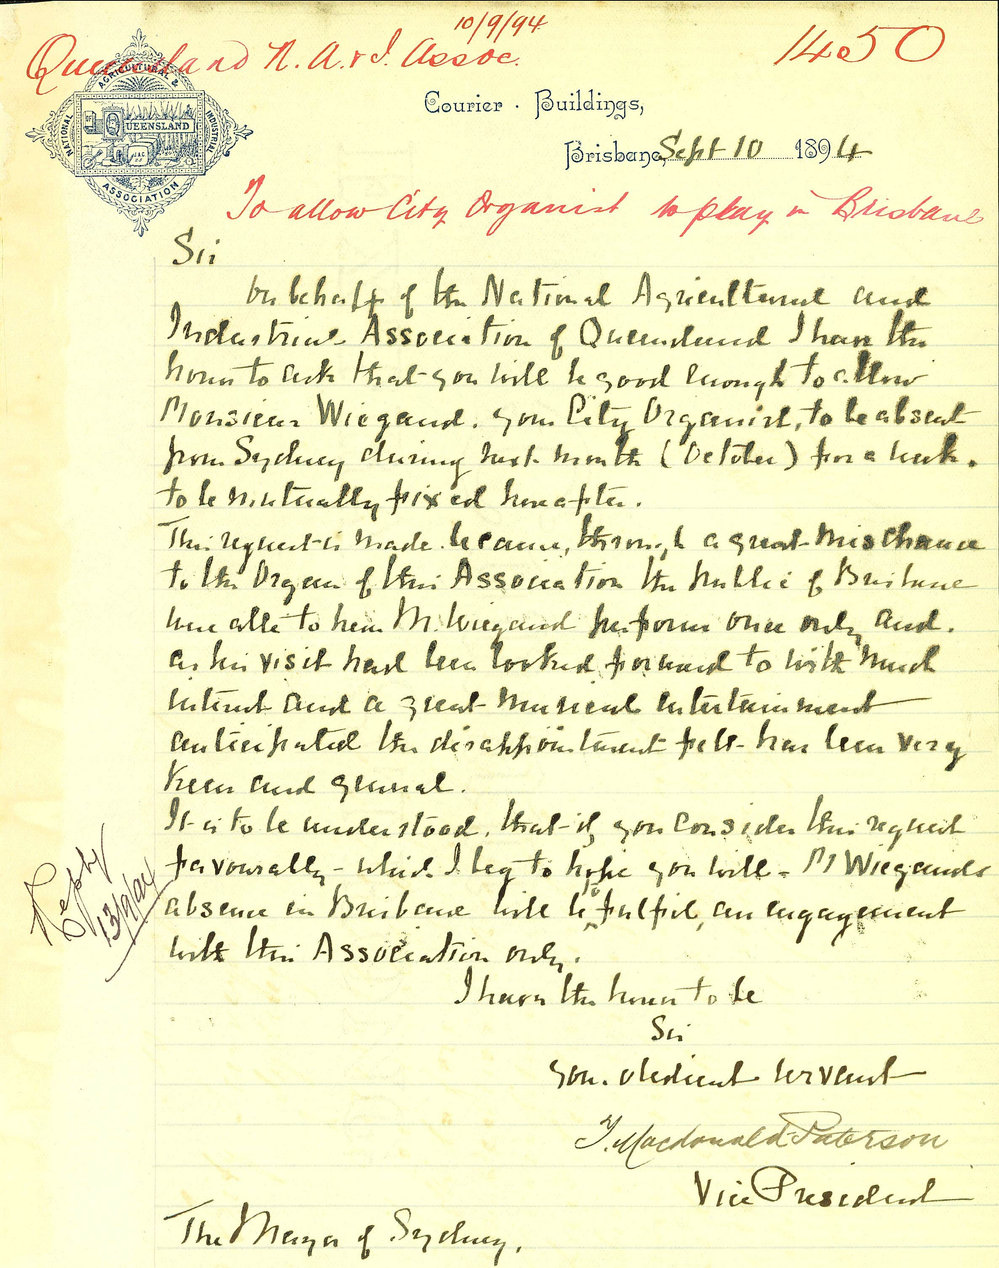 10/9/94
Queensland N. A. & I. Assoc.
1450
NATIONAL AGRICULTURAL & INDUSTRIAL ASSOCIATION
QUEENSLAND
Courier. Buildings,
Brisbane, Sept 10 1894
To allow City Organist to play in Brisbane
Sir
On behalf of the National Agricultural and
Industrial Association of Queensland I have the
honor to ask that you will be good enough to allow
Monsieur Wiegand, your City Organist, to be absent
from Sydney during next month (October) for a week,
to be mutually fixed hereafter.
This request is made because, through a great mischance
to the Organ of this Association the public of Brisbane
were able to hear M. Wiegand perform once only, and,
as his visit had been looked forward to with much
interest and a great musical entertainment
anticipated the disappointment felt has been very
keen and general.
It is to be understood, that if you consider this request
favourably – which I beg to hope you will – M Wiegands
absence in Brisbane will be to fulfil, an engagement
with this Association only.
Reply
13/9/94
I have the honor to be
Sir
Your obedient servant
T. Macdonald-Paterson
Vice President
The Mayor of Sydney.